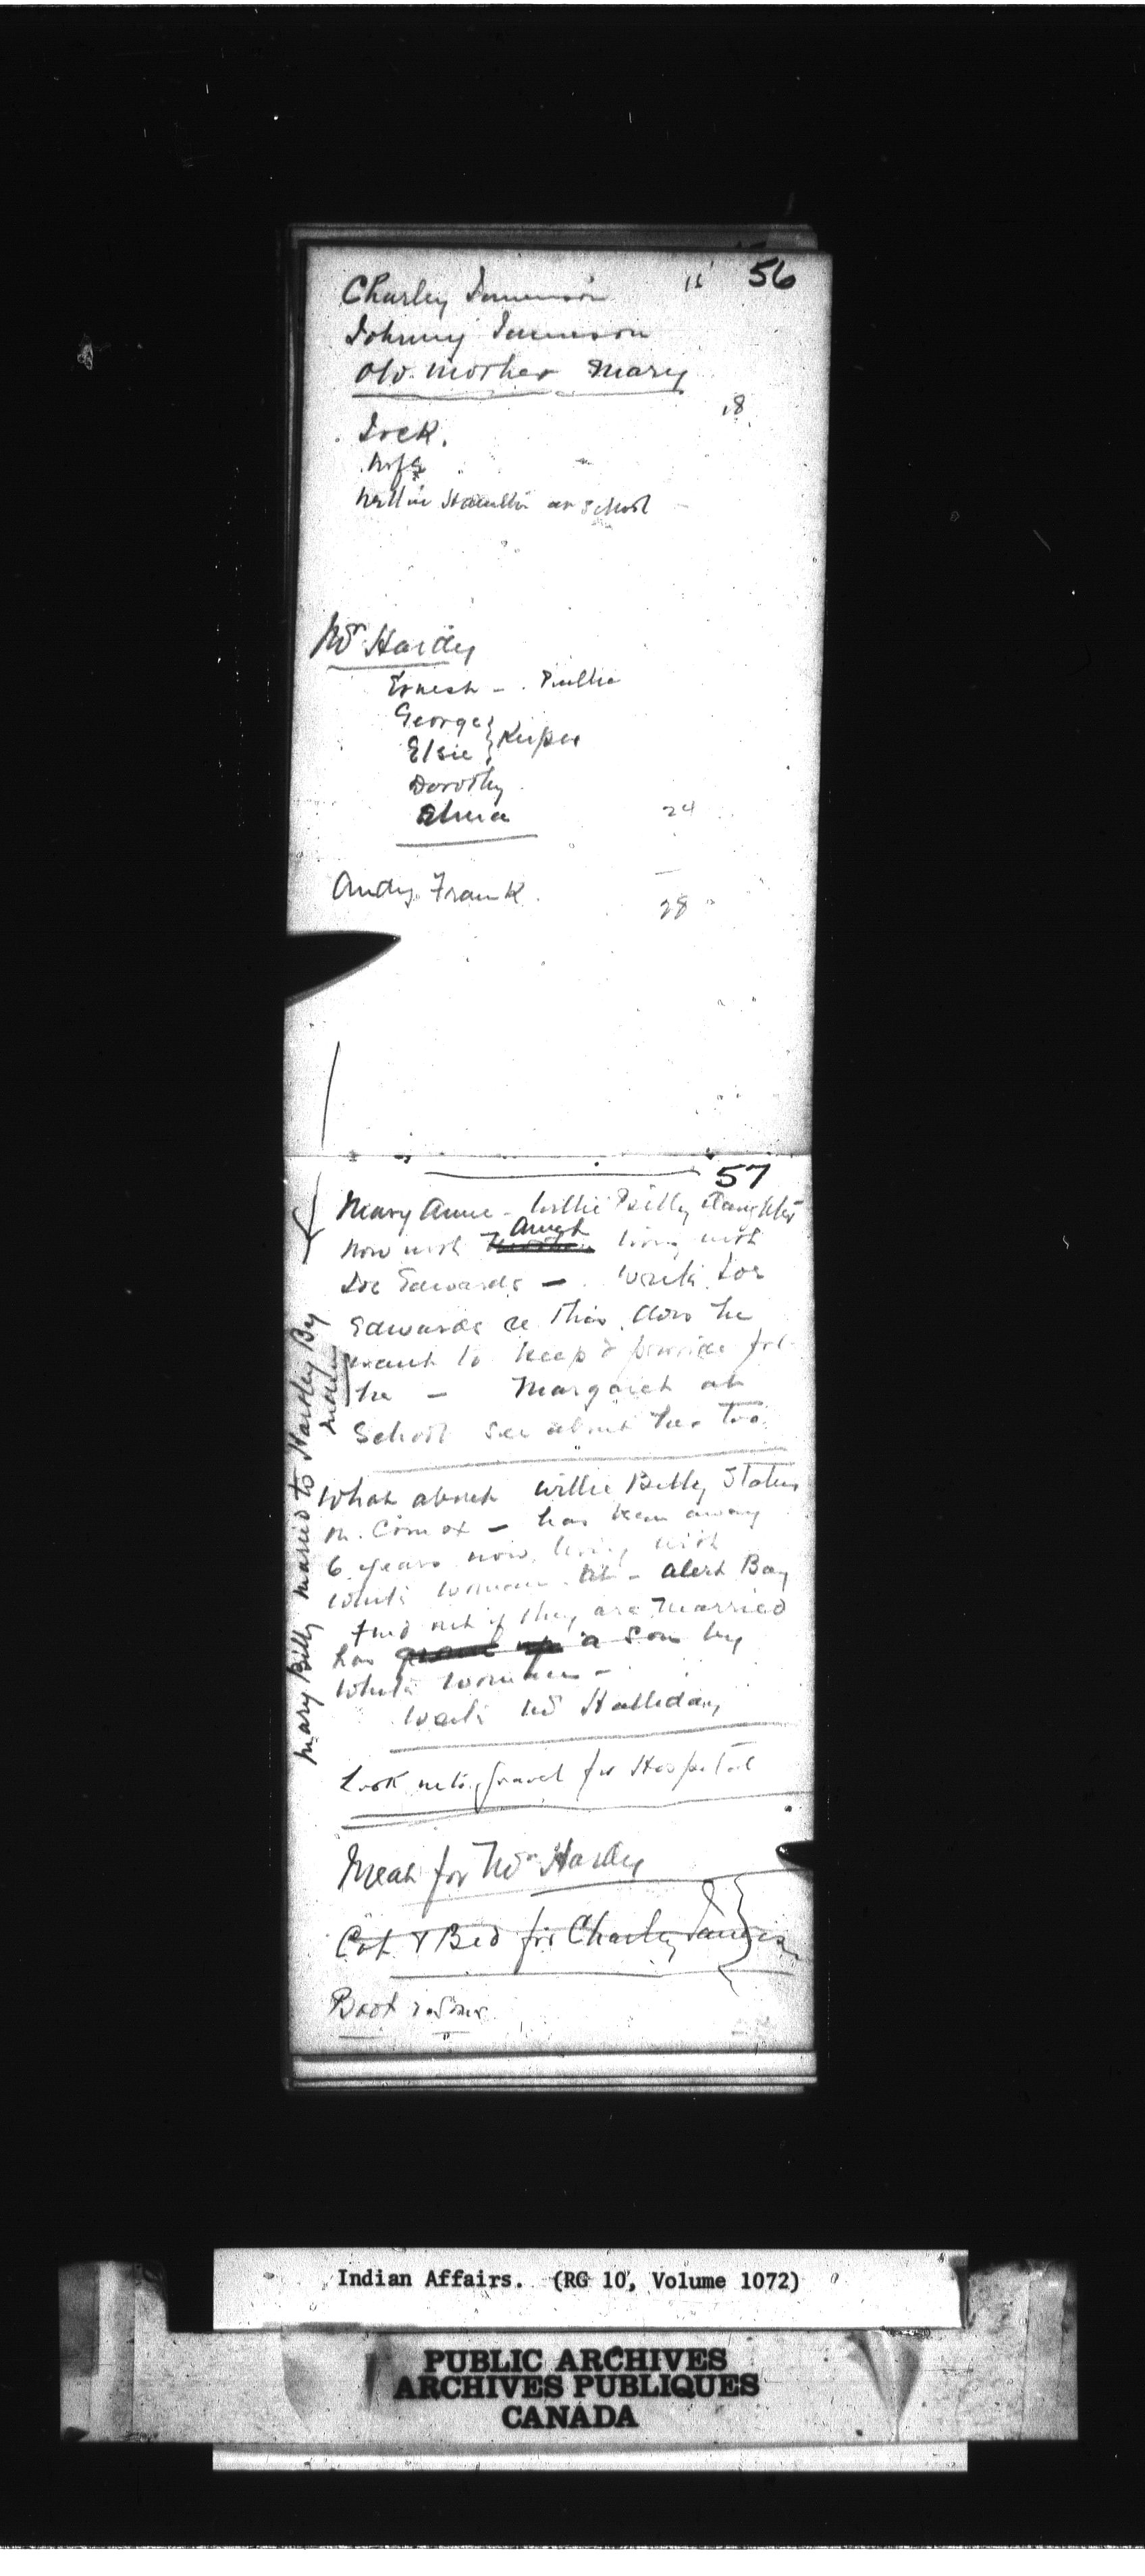 56
Charley Jameson 15
Johnny Jameson
Old mother Mary
18
Jack.
Wife
Nellie Hamilton at school
Mrs Hardy
Ernest -
George } Kuper
Elsie }
Dorothy
Alma 24
Andy Frank.
28
57
Mary Anne - Willie Billy daughter
now with Aunt living with
Joe Edwards - write Joe
Edwards re this. does he
want to keep & provide for
her - Margaret at
School see about her too.
Mary Billy married to Hartley By
What about Willie Billy Status
in Comox - has been away
6 years now, living with
white woman at - Alert Bay
find out if they are married
has a son by
white woman -
write Mr Halliday
Look into gravel for Hospital
Meat for Mrs Hardy
Cot & Bed for Charley Jameson
Boat
Indian Affairs. (RG 10, Volume 1072)
PUBLIC ARCHIVES
ARCHIVES PUBLIQUES
CANADA